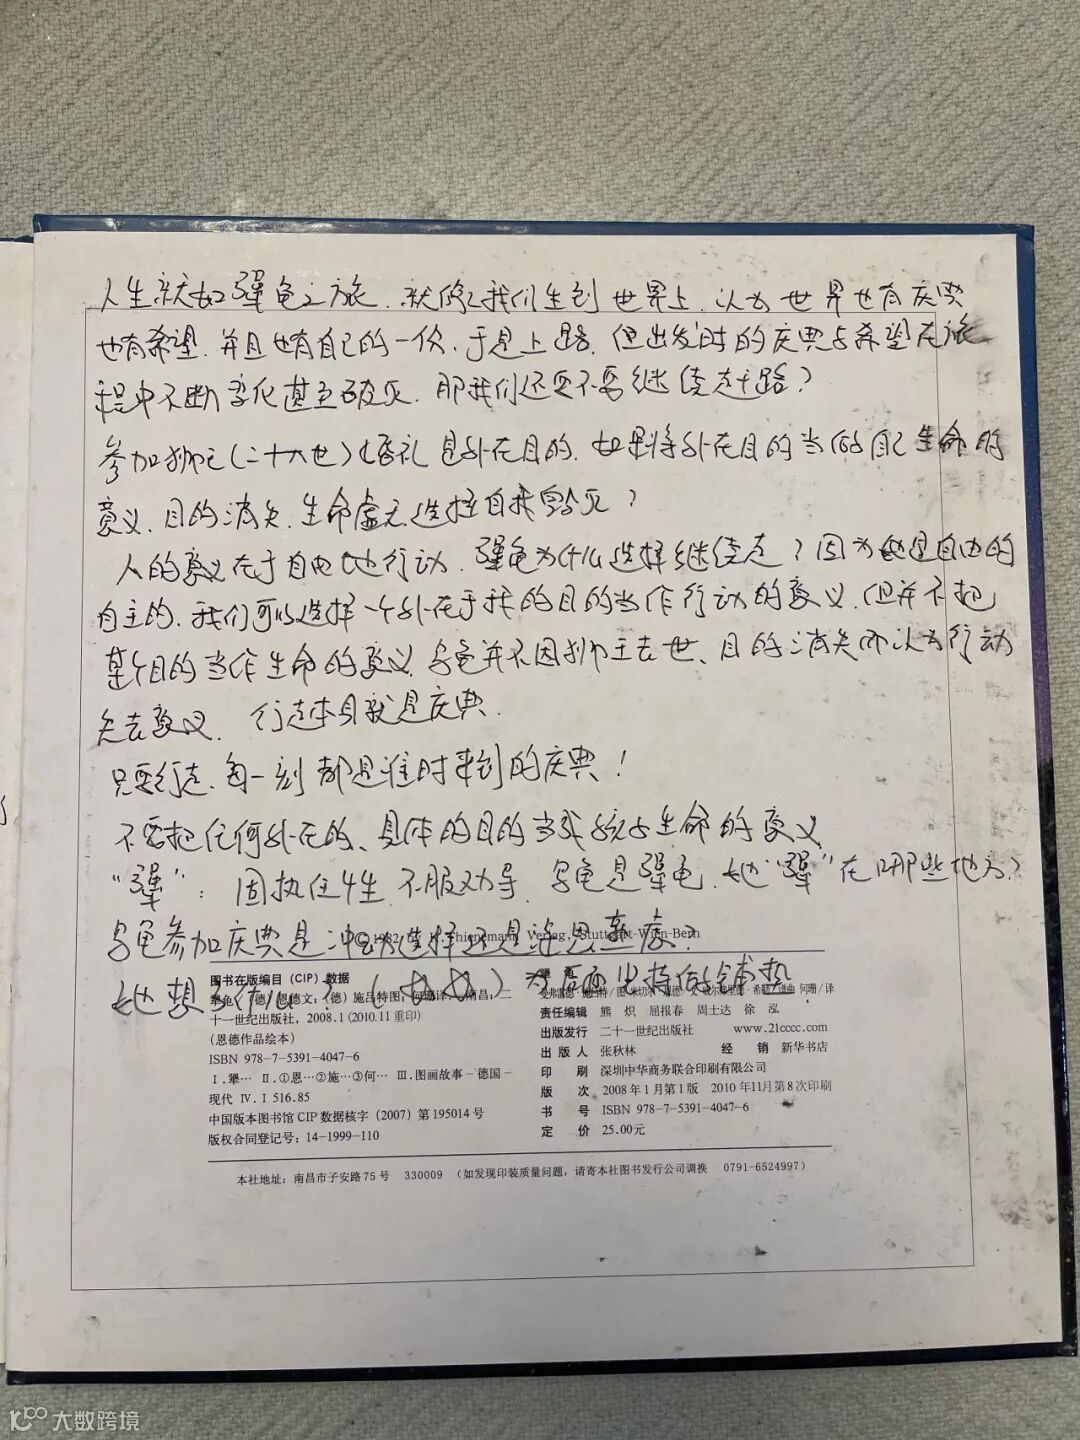 人生就如犟龟之旅.就像我们生到世界上.以为世界也有庆典
也有希望.并且也有自己的一份.于是上路.但出发时的庆典与希望在旅
程中不断变化甚至破灭.那我们还要不要继续走上路?
参加狮王(二十八世)婚礼是外在目的.如果将外在目的当做自己生命的
意义.目的消失.生命虚无.选择自我毁灭?
人的意义在于自由地行动.犟龟为什么选择继续走?因为她是自由的
自主的.我们可以选择一个外在于我的目的当作行动的意义.但并不把
某个目的当作生命的意义.乌龟并不因狮王去世、目的消失而认为行动
失去意义.行走本身就是庆典.
只要行走.每一刻都是准时来到的庆典!
不要把任何外在的、具体的目的当成 生命的意义
"犟":固执任性 不服劝导.乌龟是犟龟.她"犟"在哪些地方?
乌龟参加庆典是冲动选择还是深思 ?
©1982 Thienemann Verlag, Stuttgart-Wien-Bern
她想了什么?( )为后面坚持做铺垫
图书在版编目(CIP)数据
犟龟/(德)恩德文;(德)施吕特图;何珊译.南昌,二
十一世纪出版社, 2008.1 (2010.11 重印)
(恩德作品绘本)
ISBN 978-7-5391-4047-6
Ⅰ.犟… Ⅱ.①恩…②施…③何… Ⅲ.图画故事-德国-
现代 Ⅳ.Ⅰ516.85
中国版本图书馆CIP数据核字(2007)第195014号
版权合同登记号: 14-1999-110
何珊/译
责任编辑 熊 炽 屈报春 周士达 徐 泓
出版发行 二十一世纪出版社 www.21cccc.com
出 版 人 张秋林 经 销 新华书店
印 刷 深圳中华商务联合印刷有限公司
版 次 2008年1月第1版 2010年11月第8次印刷
书 号 ISBN 978-7-5391-4047-6
定 价 25.00元
本社地址: 南昌市子安路75号 330009 (如发现印装质量问题, 请寄本社图书发行公司调换 0791-6524997)
大数跨境